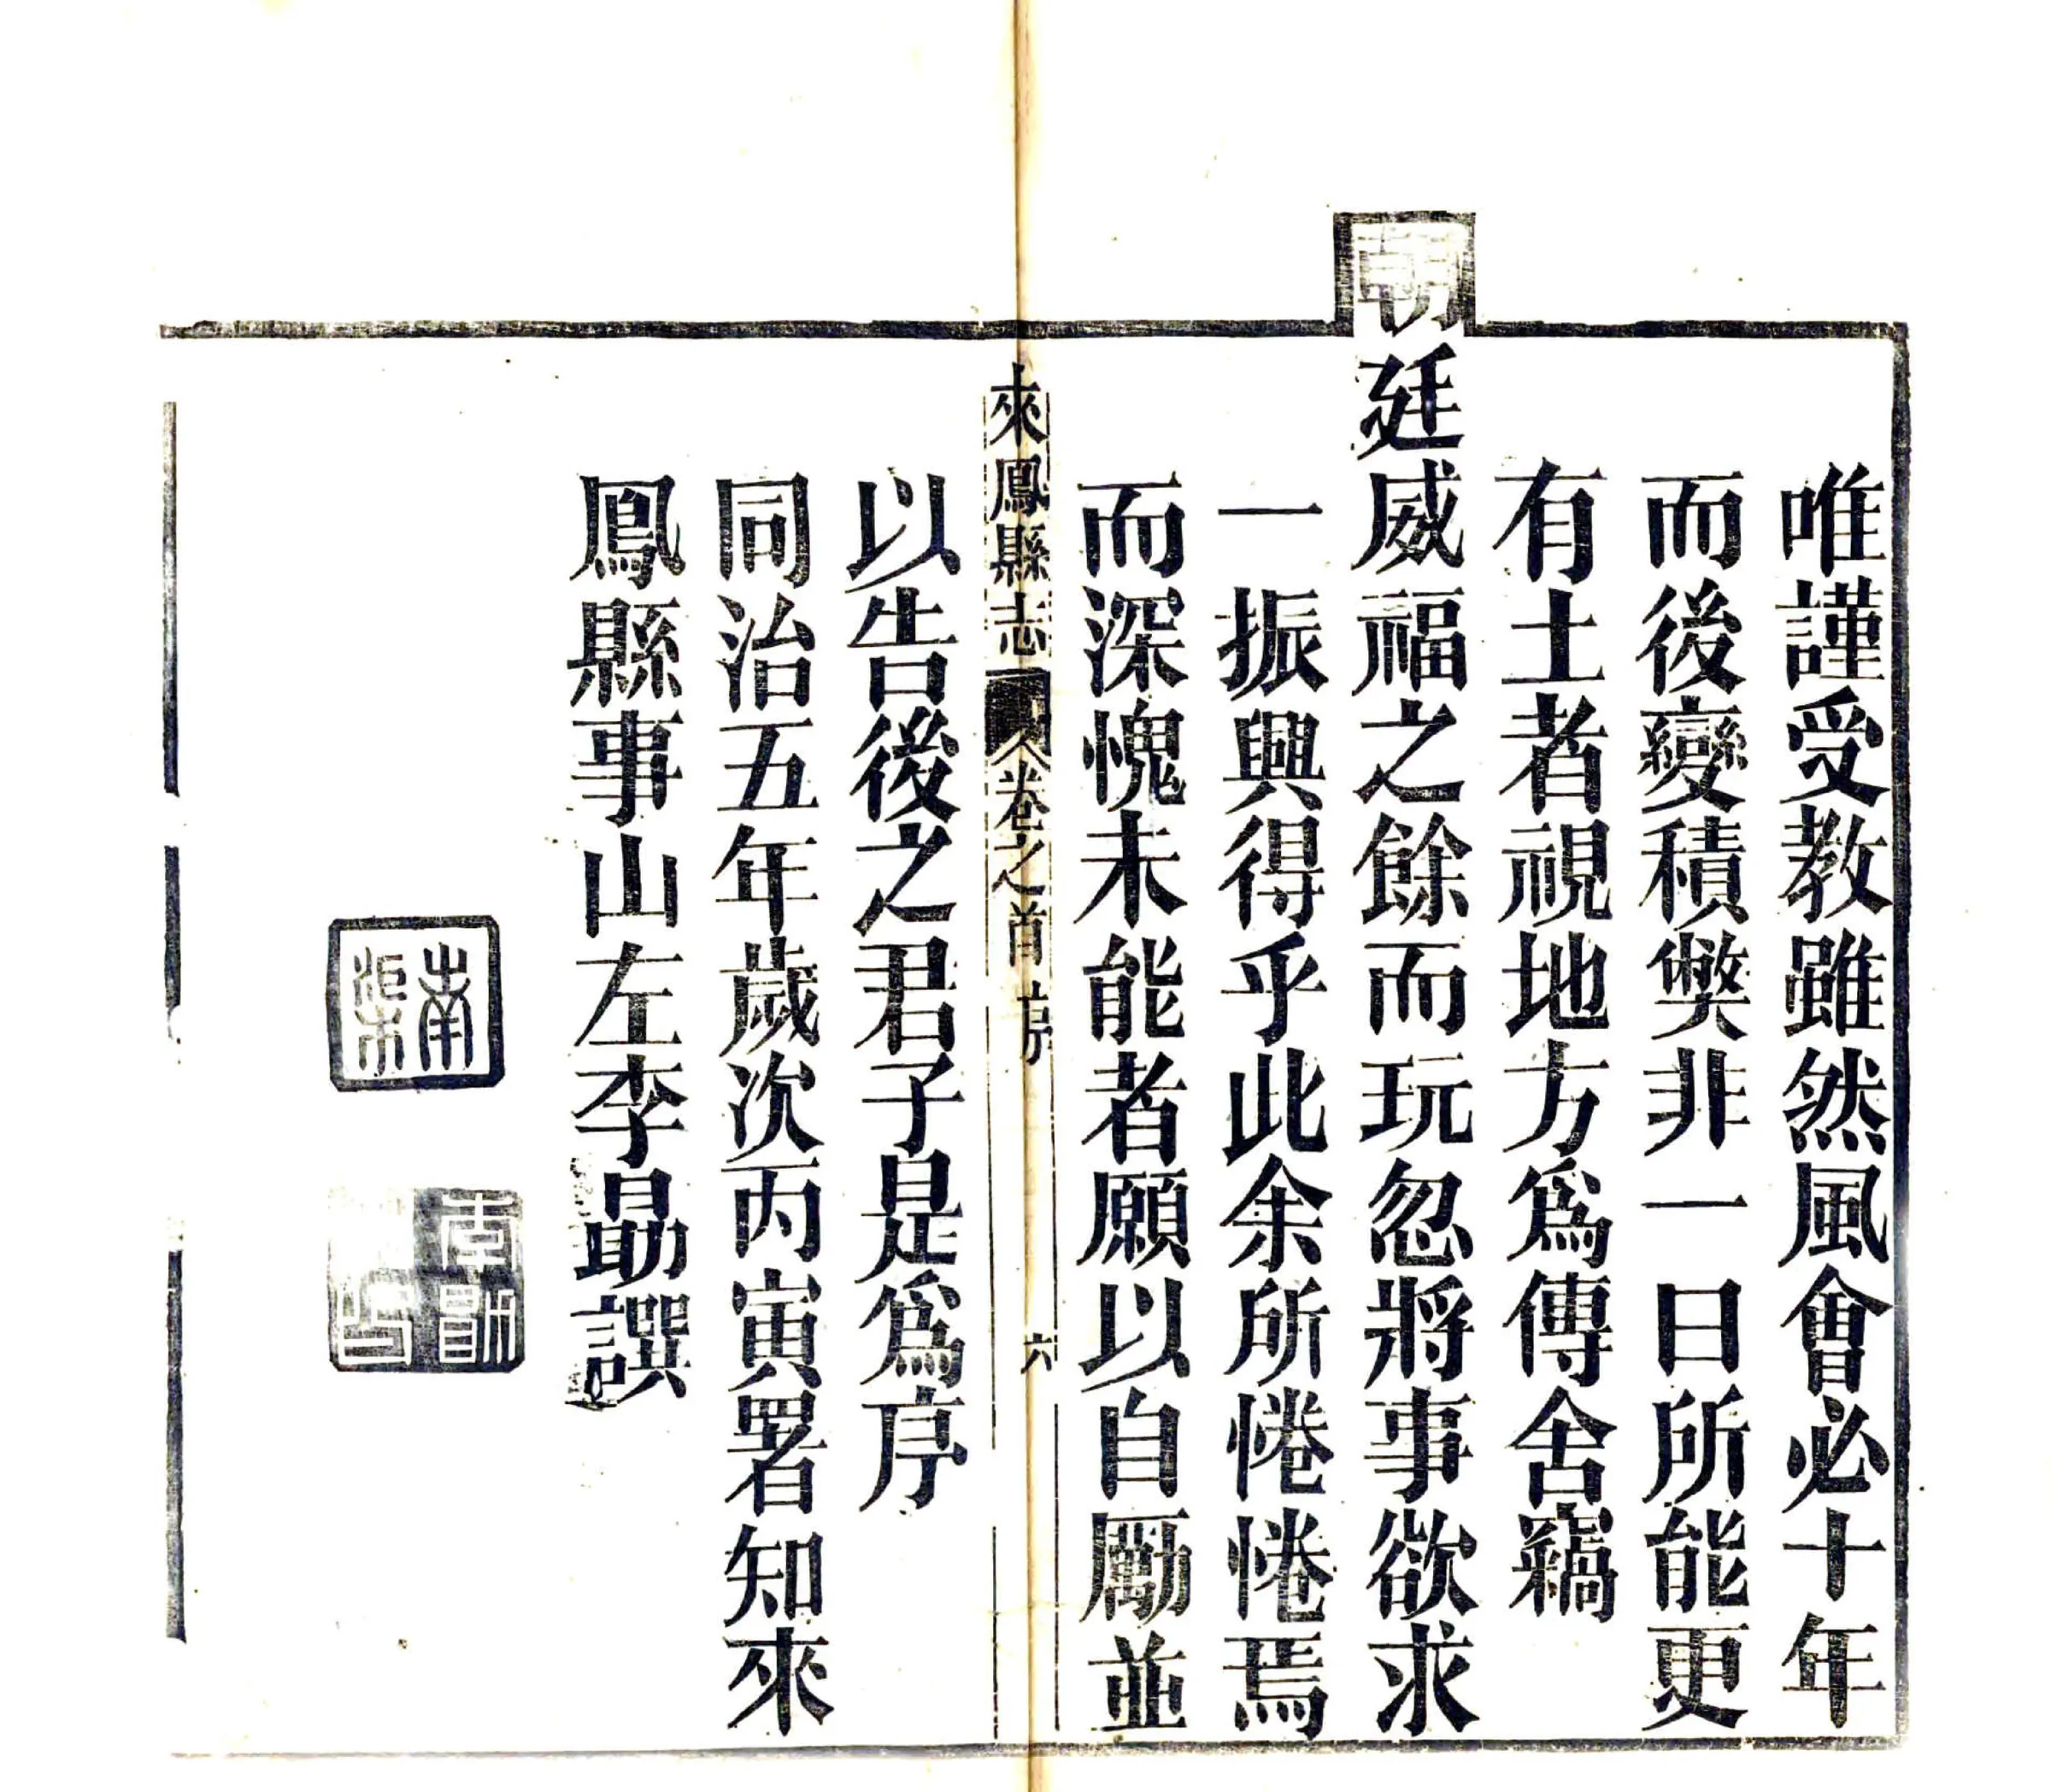 唯謹受教雖然風會必十年
而後變積弊非一日所能更
有土者視地方爲傳舍竊
朝廷威福之餘而玩忽將事欲求
一振興得乎此余所惓惓焉
而深愧未能者願以自勵並
來鳳縣志 卷之首 序 六
以告後之君子是爲序
同治五年歲次丙寅署知來
鳳縣事山左李勗譔
南渠
李勗